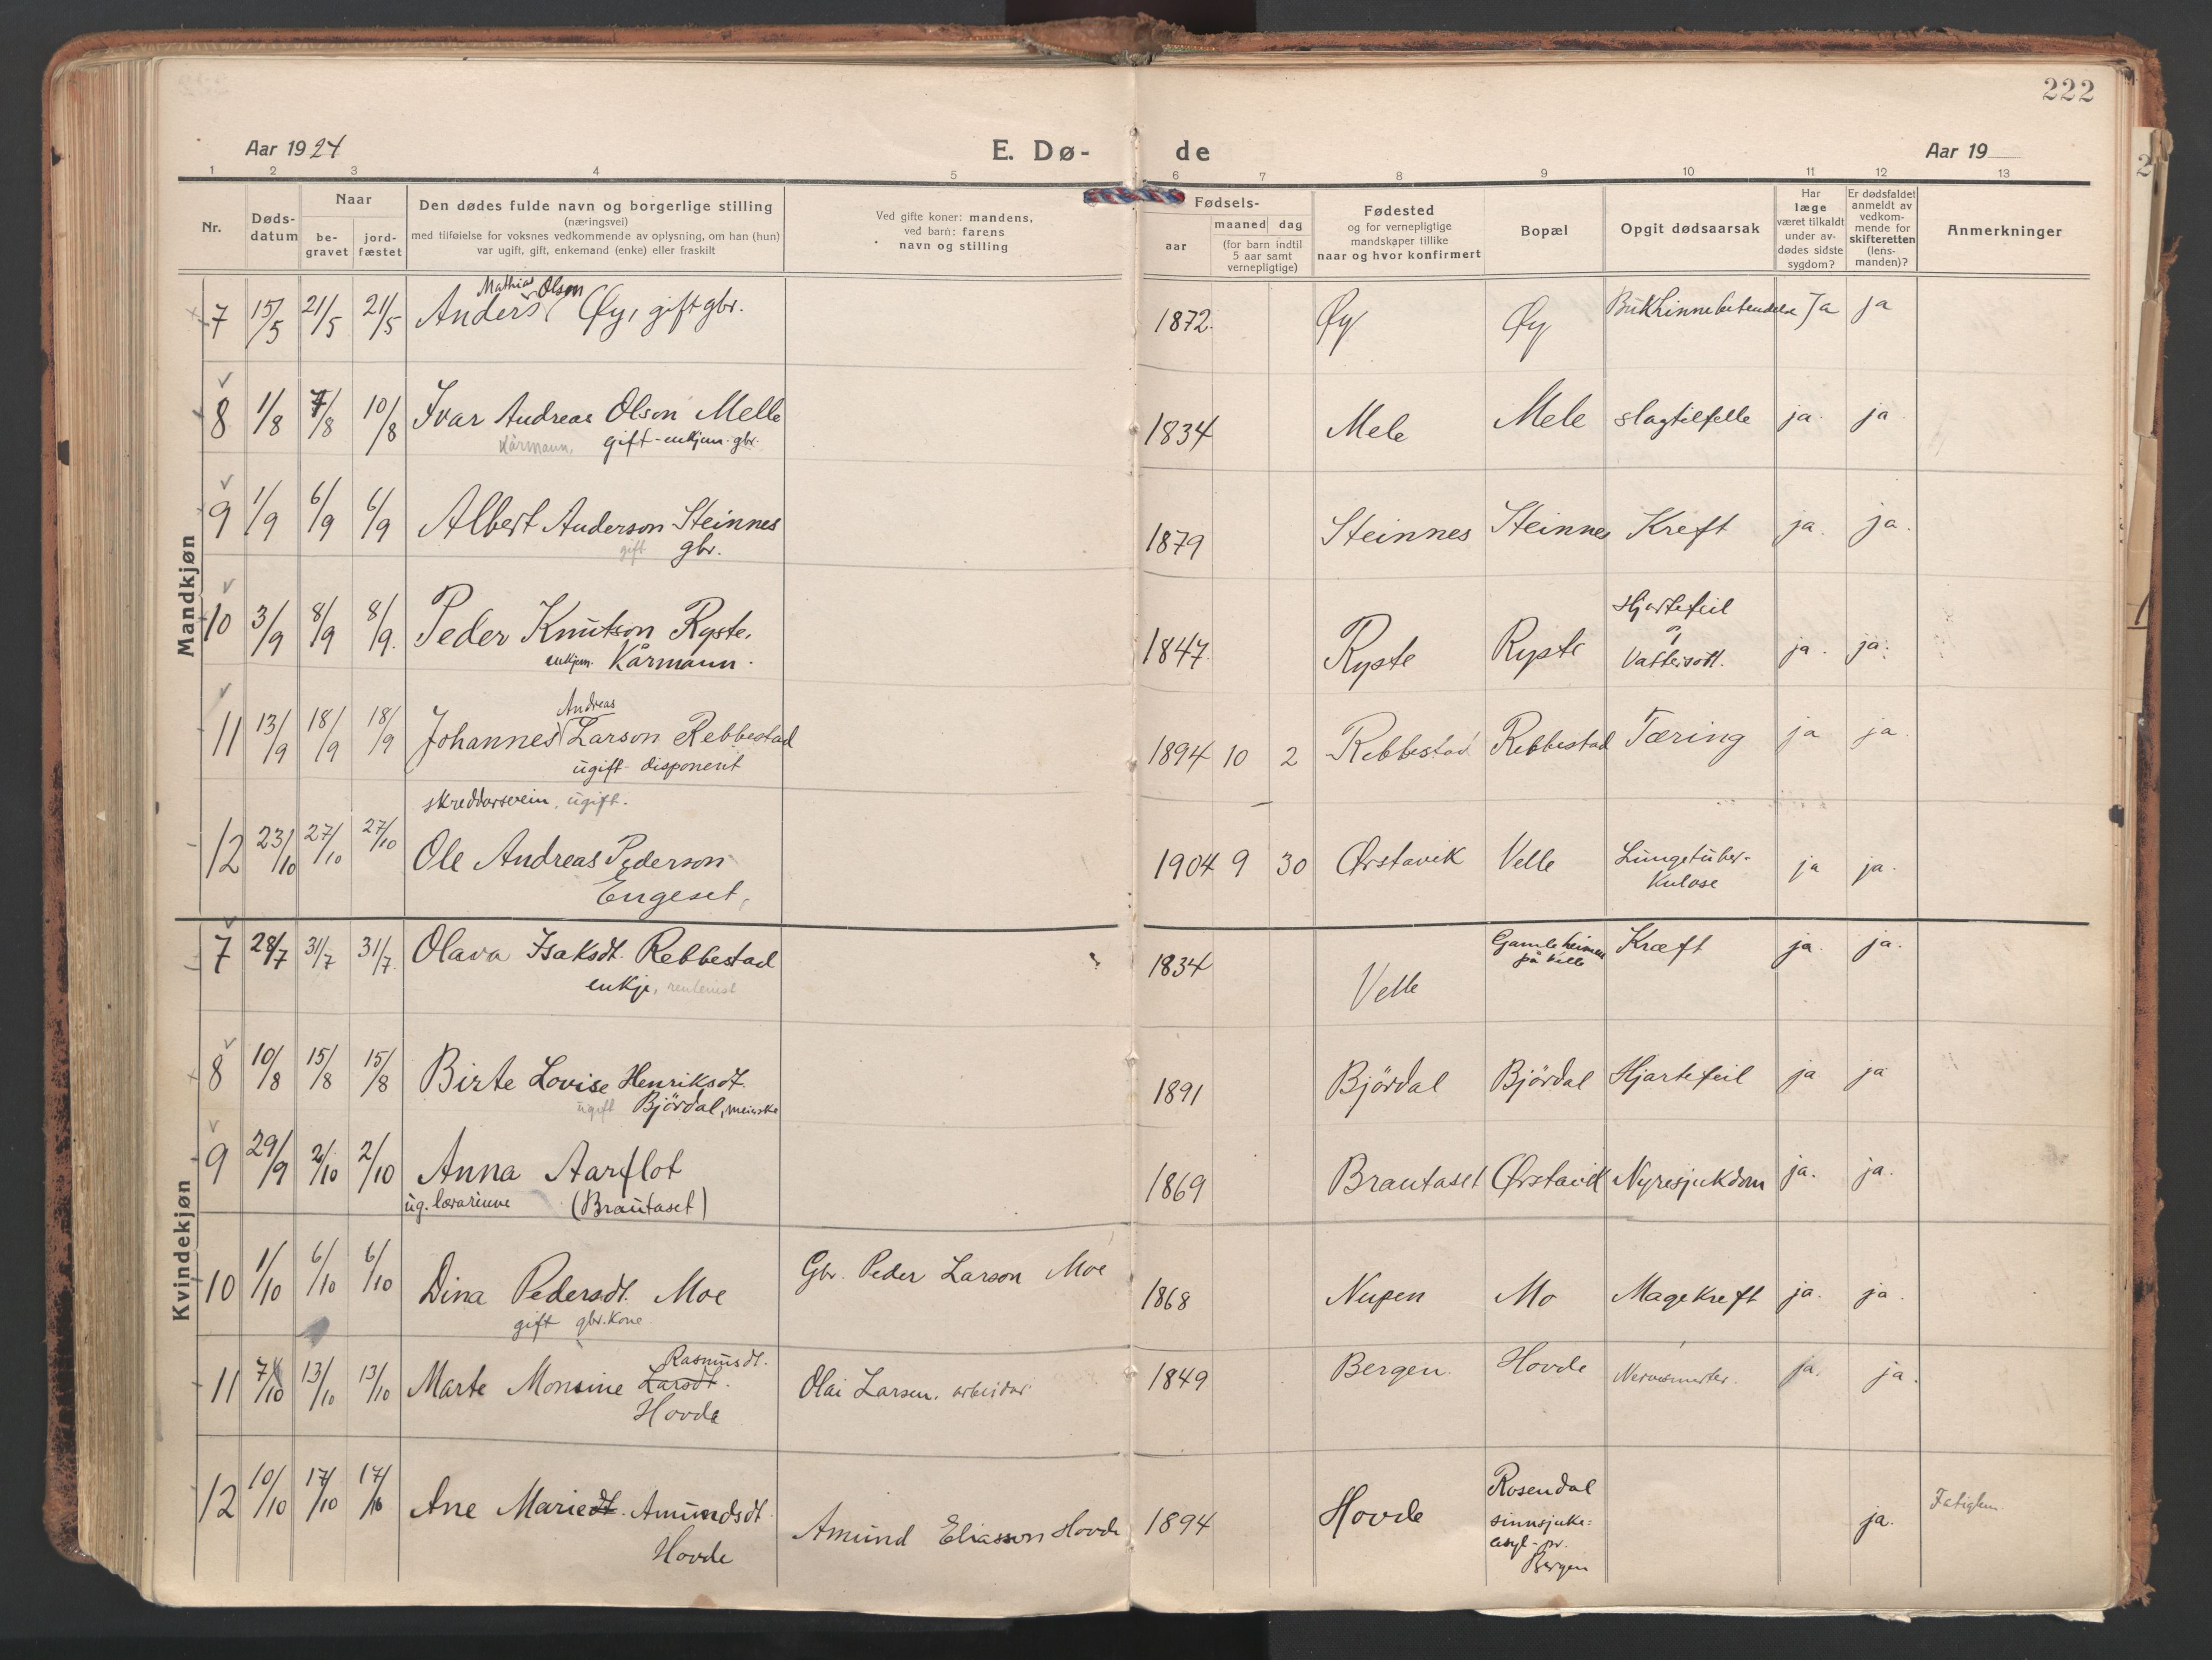 222
Aar 1924
E. Dø-
de
Aar 19
1 2 3 4 5 6 7 8 9 10 11 12 13
Nr.
Døds-
datum
Naar
be-
gravet
jord-
fæstet
Den dødes fulde navn og borgerlige stilling
(næringsvei)
med tilføielse for voksnes vedkommende av oplysning, om han (hun)
var ugift, gift, enkemand (enke) eller fraskilt
Ved gifte koner: mandens,
ved barn: farens
navn og stilling
Fødsels-
aar
maaned dag
(for barn indtil
5 aar samt
vernepligtige)
Fødested
og for vernepligtige
mandskaper tillike
naar og hvor konfirmert
Bopæl
Opgit dødsaarsak
Har
læge
været tilkaldt
under av-
dødes sidste
sygdom?
Er dødsfaldet
anmeldt av
vedkom-
mende for
skifteretten
(lens-
manden)?
Anmerkninger
Mandkjøn
Mathias Olson
7 15/5 21/5 21/5 Anders Øy, gift gbr. 1872. Øy Øy Bukhinnebetendelse Ja ja
8 1/8 7/8 10/8 Ivar Andreas Olson Melle 1834 Mele Mele slagtilfelle ja. ja
kårmann, gift - enkjem. gbr.
9 1/9 6/9 6/9 Albert Anderson Steinnes 1879 Steinnes Steinnes Kreft ja. ja.
gift gbr.
10 3/9 8/9 8/9. Peder Knutson Ryste. 1847. Ryste Ryste Hjartefeil
Vattersott. ja. ja.
enkjem. Kårmann.
Andreas
11 13/9 18/9 18/9 Johannes Larson Rebbestad 1894 10 2 Rebbestad Rebbestad Tæring ja ja.
ugift - disponent
skreddarsvein, ugift.
12 23/10 27/10 27/10 Ole Andreas Pederson 1904 9 30 Ørstavik Velle Lungetuber-
kulose ja ja.
Engeset,
Kvindekjøn
7 28/7 31/7 31/7. Olava Isaksdt. Rebbestad 1834 Velle Gamleheimen
på Velle Kræft ja. ja.
enkje, rentenist
8 10/8 15/8 15/8 Birte Lovise Henriksdt. 1891 Björdal Björdal Hjartefeil ja ja
ugift Björdal, meierske
9 29/9 2/10 2/10 Anna Aarflot 1869 Brautaset Ørstavik Nyresjukdom ja. ja.
ug. lærarinne (Brautaset)
10 1/10 6/10 6/10 Dina Pedersdt. Moe Gbr. Peder Larson Moe 1868 Nupen Mo Magekreft ja. ja.
gift gbr. kone
Rasmusdt.
11 7/10 13/10 13/10 Marte Monsine Larsdt. Olai Larsen, arbeidar 1849 Bergen. Hovde ja. ja.
Hovde
12 10/10 17/10 17/10 Ane Mariedt. Amundsdt. Amund Eliasson Hovde 1894 Hovde Rosendal
sinnsjuke=
asyl - pr.
Bergen ja. Fatiglem
Hovde